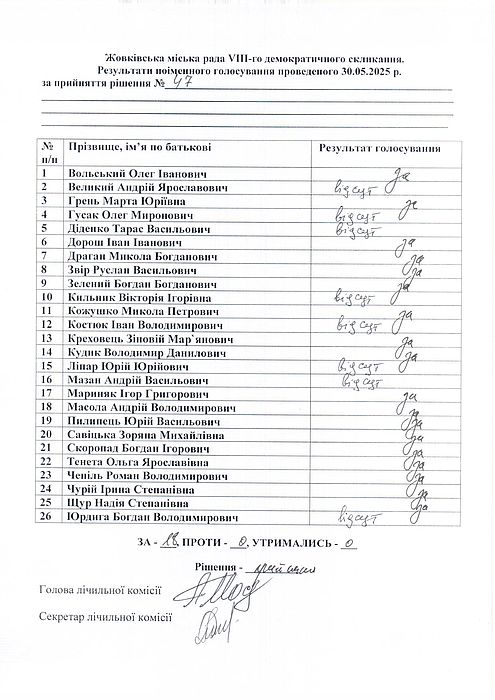 Жовківська міська рада VIII-го демократичного скликання.
Результати поіменного голосування проведеного 30.05.2025 р.
за прийняття рішення № 47
№ п/п Прізвище, ім’я по батькові Результат голосування
1 Вольський Олег Іванович за
2 Великий Андрій Ярославович відсут
3 Грень Марта Юріївна за
4 Гусак Олег Миронович відсут
5 Діденко Тарас Васильович відсут
6 Дорош Іван Іванович за
7 Драган Микола Богданович за
8 Звір Руслан Васильович за
9 Зелений Богдан Богданович за
10 Кильник Вікторія Ігорівна відсут
11 Кожушко Микола Петрович за
12 Костюк Іван Володимирович відсут
13 Креховець Зіновій Мар`янович за
14 Кудик Володимир Данилович за
15 Лінар Юрій Юрійович відсут
16 Мазан Андрій Васильович відсут
17 Мариняк Ігор Григорович за
18 Масола Андрій Володимирович за
19 Пилипець Юрій Васильович за
20 Савіцька Зоряна Михайлівна за
21 Скоропад Богдан Ігорович за
22 Тенета Ольга Ярославівна за
23 Чепіль Роман Володимирович за
24 Чурій Ірина Степанівна за
25 Щур Надія Степанівна за
26 Юрдига Богдан Володимирович відсут
ЗА - 18, ПРОТИ - 0, УТРИМАЛИСЬ - 0
Рішення - прийнято
Голова лічильної комісії
Секретар лічильної комісії